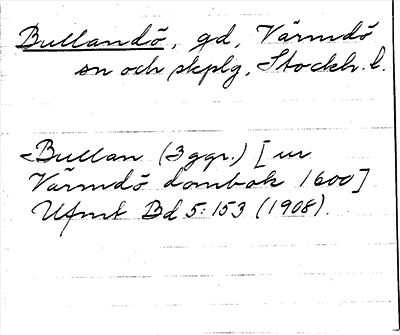 Bullandö, gd, Värmdö
sn och skplg, Stockh. l.
Bullan (3 ggr.) [ur
Värmdö dombok 1600]
Ufmt Bd 5:153 (1908).